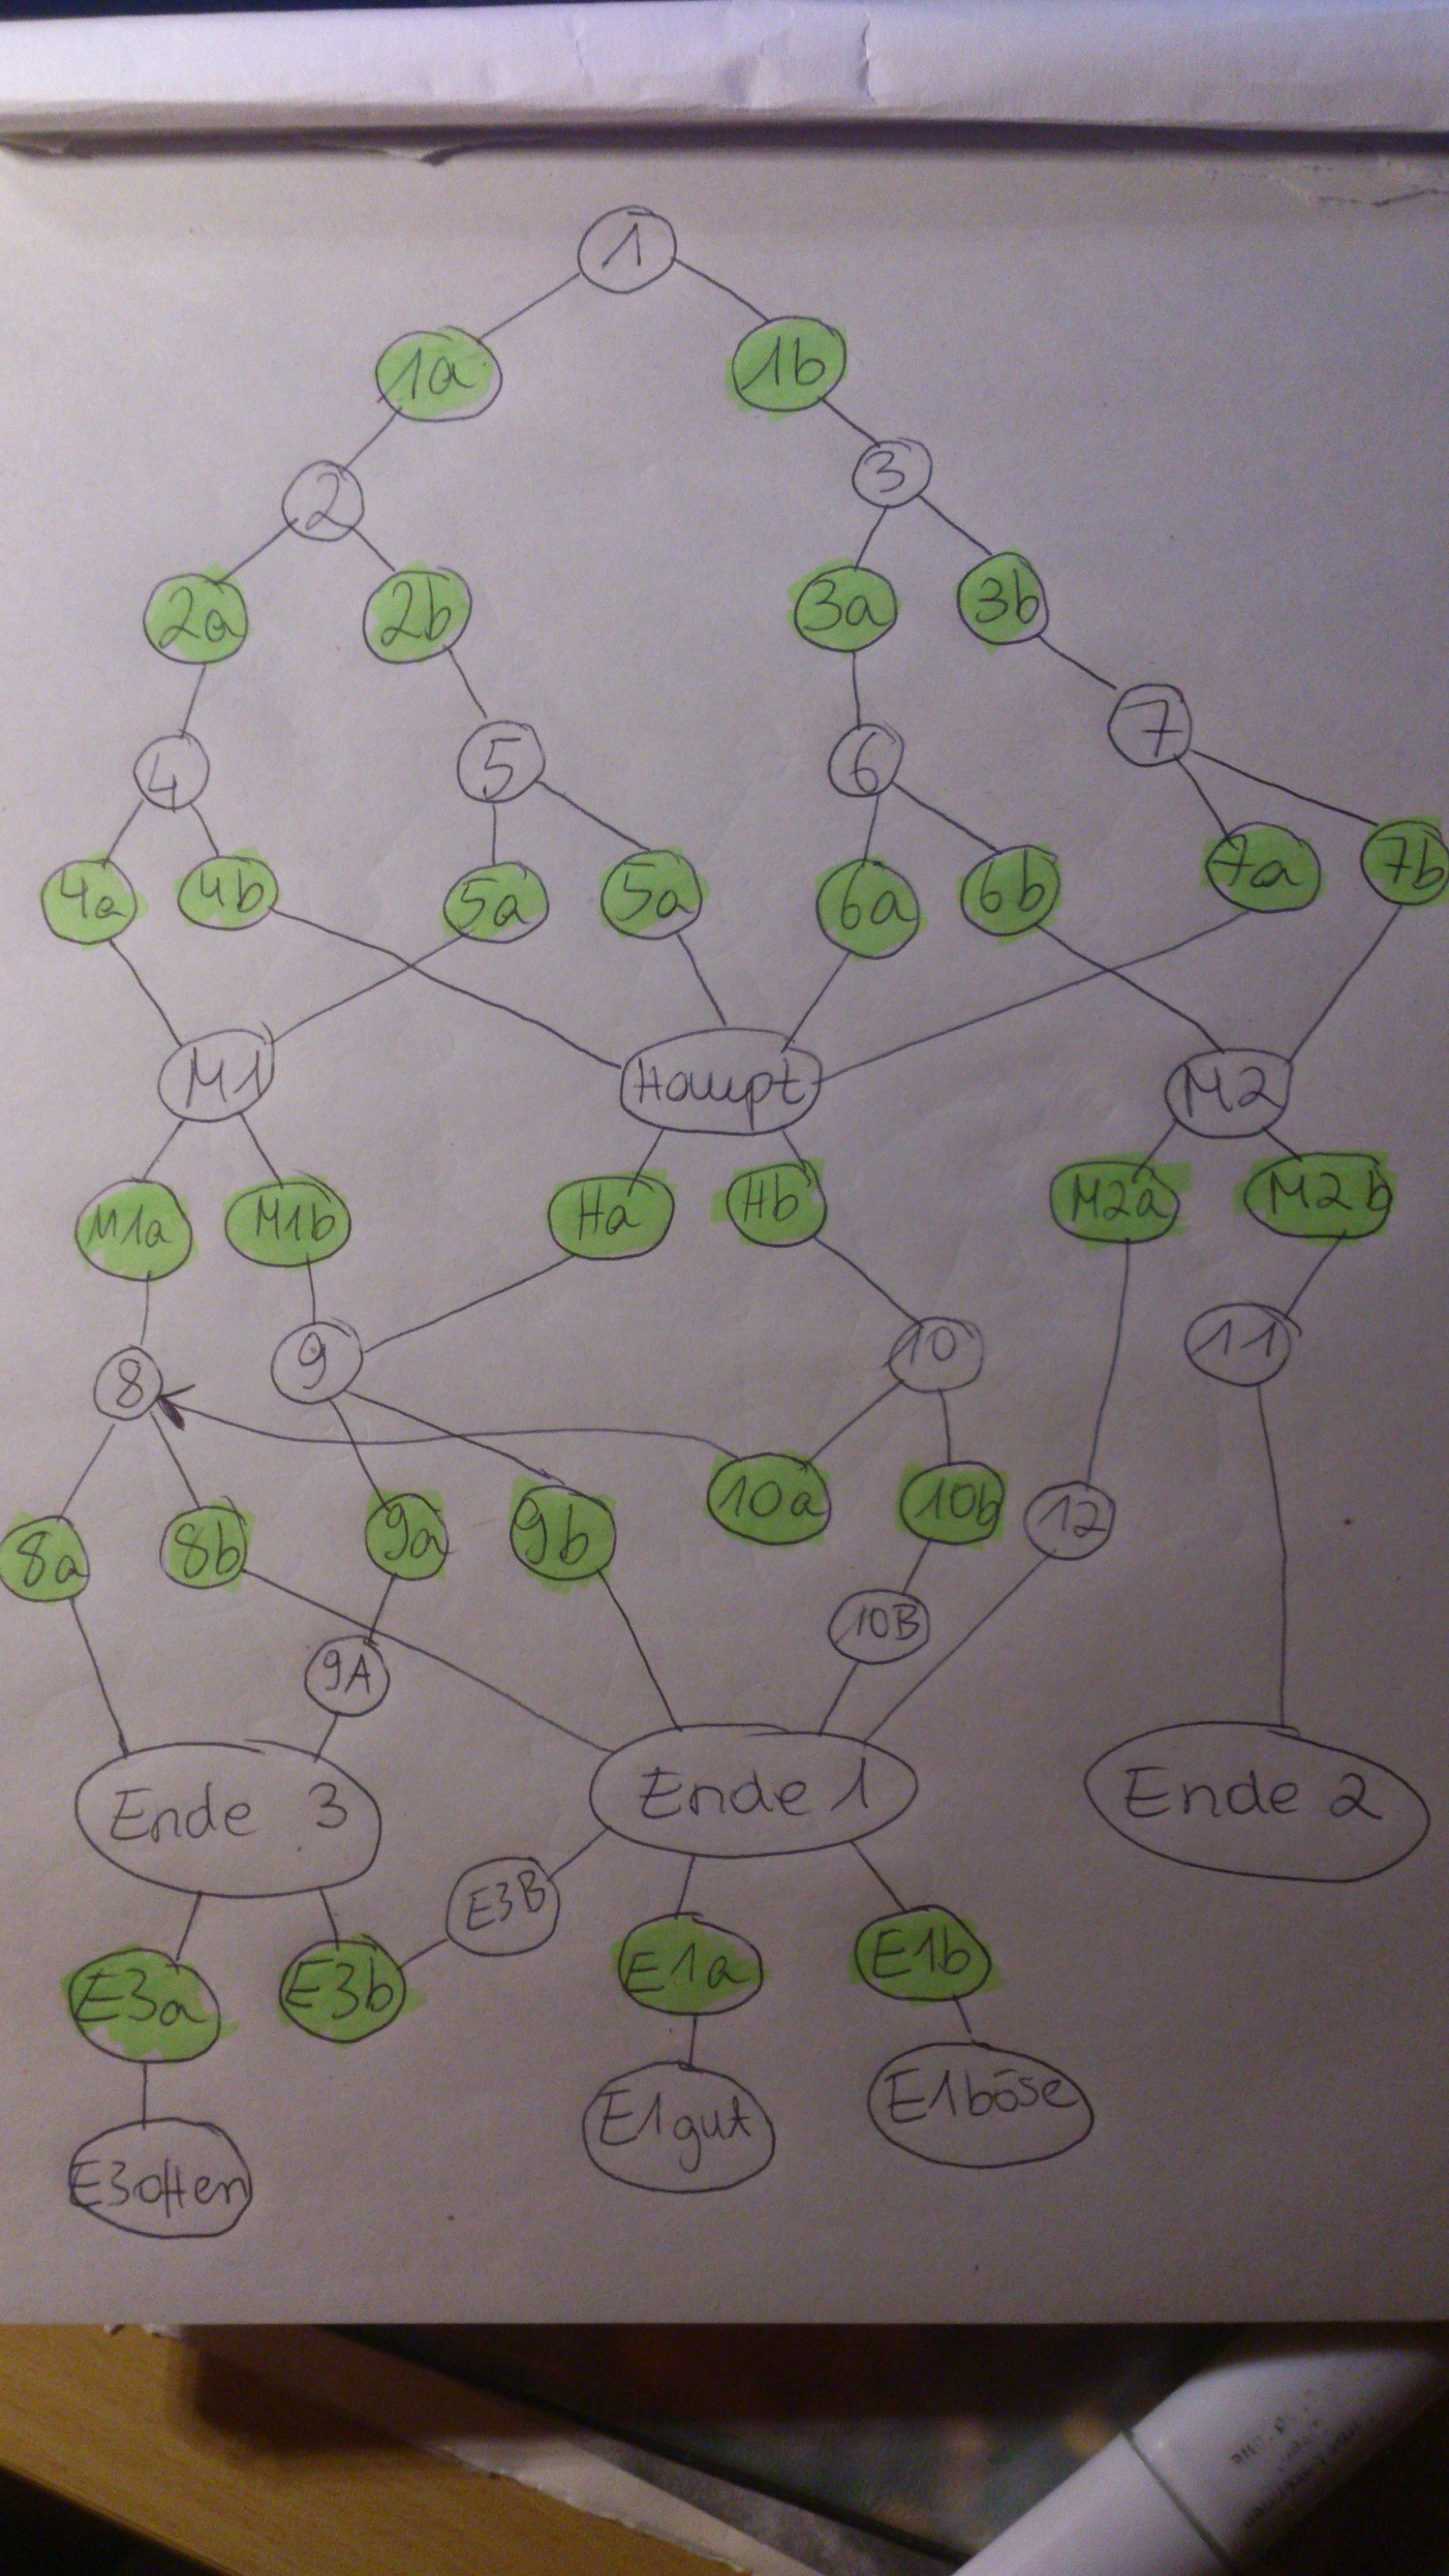 1
1a
1b
2
3
2a
2b
3a
3b
4
5
6
7
4a
4b
5a
5a
6a
6b
7a
7b
M1
Haupt
M2
M1a
M1b
Ha
Hb
M2a
M2b
8
9
10
11
8a
8b
9a
9b
10a
10b
12
9A
10B
Ende 3
Ende 1
Ende 2
E3a
E3b
E3B
E1a
E1b
E3offen
E1gut
E1böse